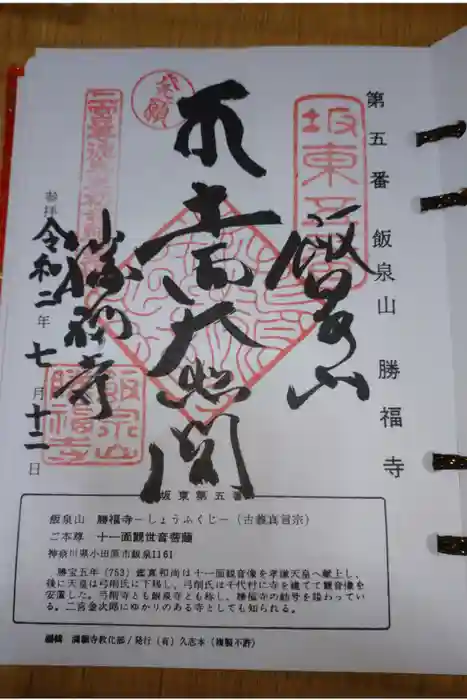 第五番 飯泉山 勝福寺
坂東五
飯泉山
発願
本尊大悲閣
勝福寺
参拝 令和二年七月十二日
飯泉山
勝福寺
坂東第五番
飯泉山 勝福寺－しょうふくじ－(古義真言宗)
ご本尊 十一面観世音菩薩
神奈川県小田原市飯泉1161
勝宝五年(753)鑑真和尚は十一面観音像を孝謙天皇へ献上し、
後に天皇は弓削氏に下賜し、弓削氏は千代村に寺を建てて観音像を
安置した。弓削寺とも飯泉寺とも称し、勝福寺の勅号を賜わってい
る。二宮金次郎にゆかりのある寺としても知られる。
編輯 満願寺教化部/発行(有)久志本(複製不許)